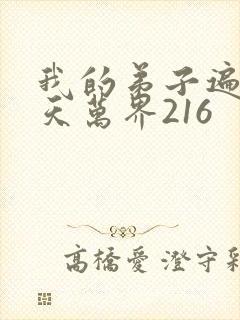 我的弟子遍
天萬界216
高橋愛 澄守彩